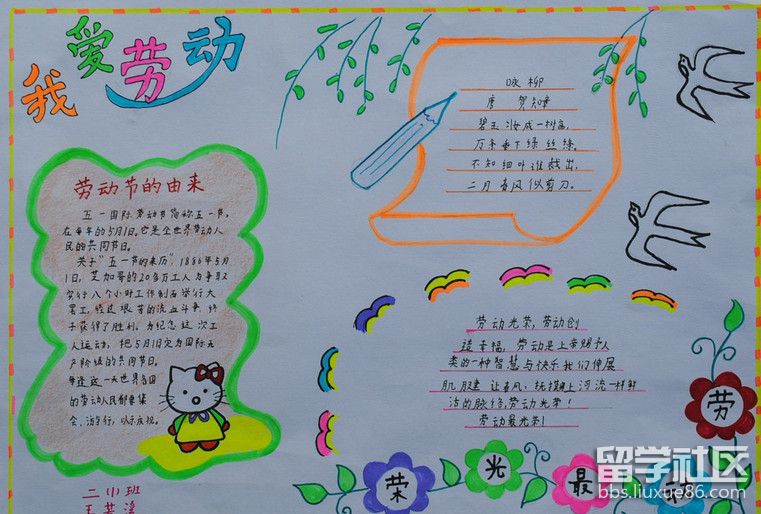 我爱劳动
劳动节的由来
五一国际劳动节简称五一节,
在每年的5月1日。它是全世界劳动人
民的共同节日。
关于"五一节的来历",1886年5月
1日,芝加哥的20多万工人为争取
实行八个小时工作制而举行大
罢工,经过艰苦的流血斗争,终
于获得了胜利。为纪念这次工
人运动,把5月1日定为国际无
产阶级的共同节日。
每逢这一天世界各国
的劳动人民都要集
会、游行,以示庆祝。
二小班
咏柳
唐 贺知章
碧玉妆成一树高,
万条垂下绿丝绦。
不知细叶谁裁出,
二月春风似剪刀。
劳动光荣,劳动创
造幸福,劳动是上帝赐予人
类的一种智慧与快乐我们伸展
肌腱 让春风:抚摸上河流一样鲜
活的脉络,劳动光荣!
劳动最光荣!
劳
荣 光 最
留学社区
bbs.liuxue86.com